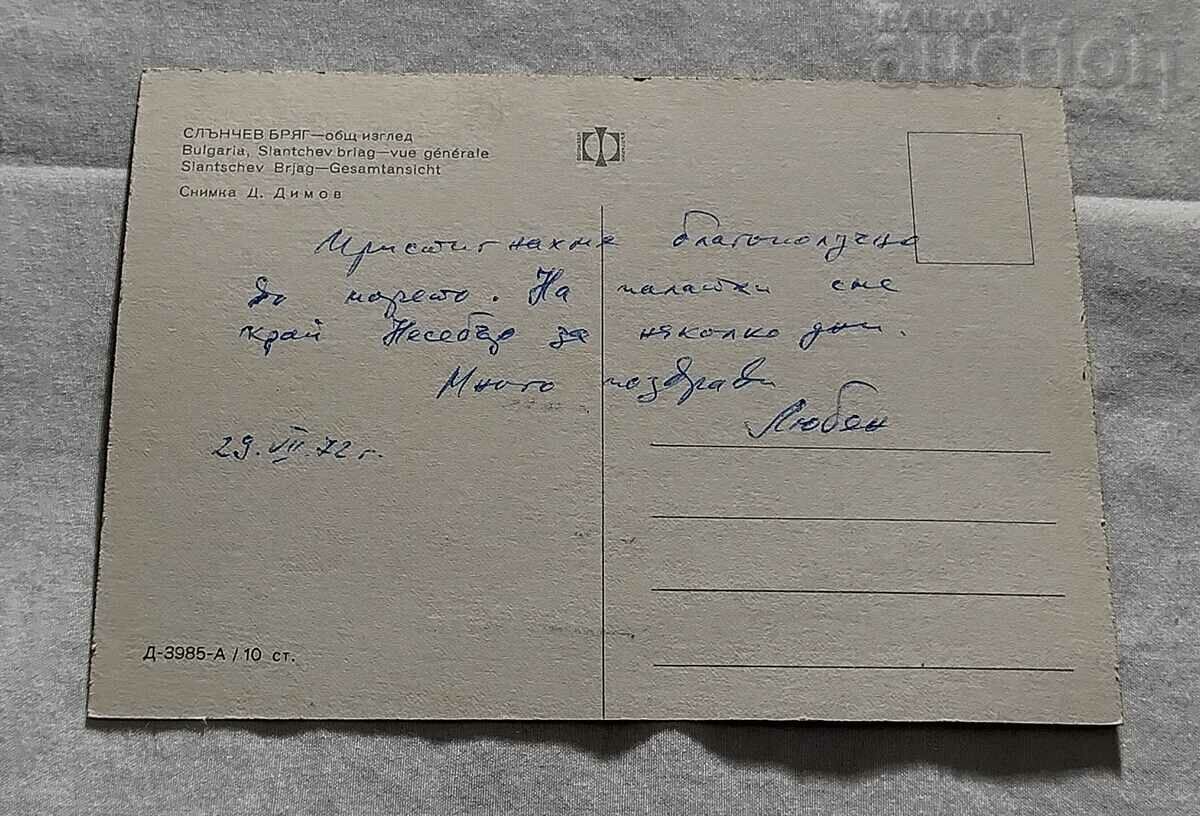 BALKAN
auction
СЛЪНЧЕВ БРЯГ—общ изглед
Bulgaria, Slantchev briag—vue générale
Slantschev Brjag—Gesamtansicht
Снимка Д. Димов
Пристигнахме благополучно
до морето. На палатки сме
край Несебър за няколко дни.
Много поздрави
Любен
29.VII.72 г.
Д-3985-А / 10 ст.